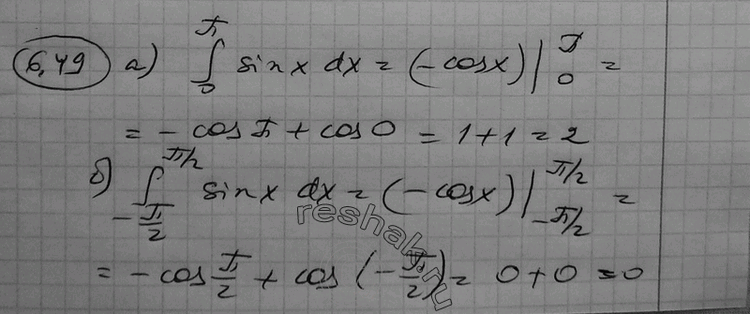 6.49 а) ∫₀^π sin x dx = (-cos x) |₀^π =
= - cos π + cos 0 = 1 + 1 = 2
б) ∫_{-π/2}^{π/2} sin x dx = (-cos x) |_{-π/2}^{π/2} =
= - cos π/2 + cos (-π/2) = 0 + 0 = 0
reshak.ru